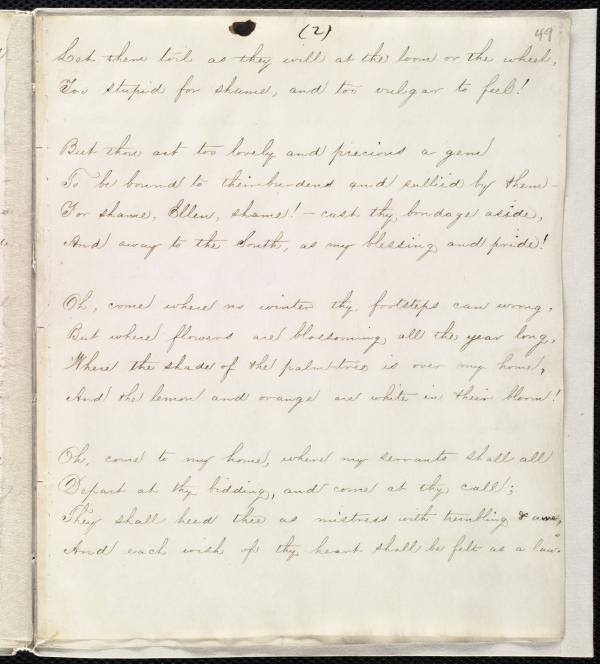 (2)
49
Let them toil as they will at the loom or the wheel,
Too stupid for shame, and too vulgar to feel!
But thou art too lovely and precious a gem
To be bound to their burdens and sullied by them—
For shame, Ellen, shame!—cast thy bondage aside,
And away to the South, as my blessing and pride!
Oh, come where no winter thy footsteps can wrong,
But where flowers are blossoming all the year long,
Where the shade of the palm-tree is over my home,
And the lemon and orange are white in their bloom!
Oh, come to my home, where my servants shall all
Depart at thy bidding, and come at thy call;
They shall heed thee as mistress with trembling & awe,
And each wish of thy heart shall be felt as a law."